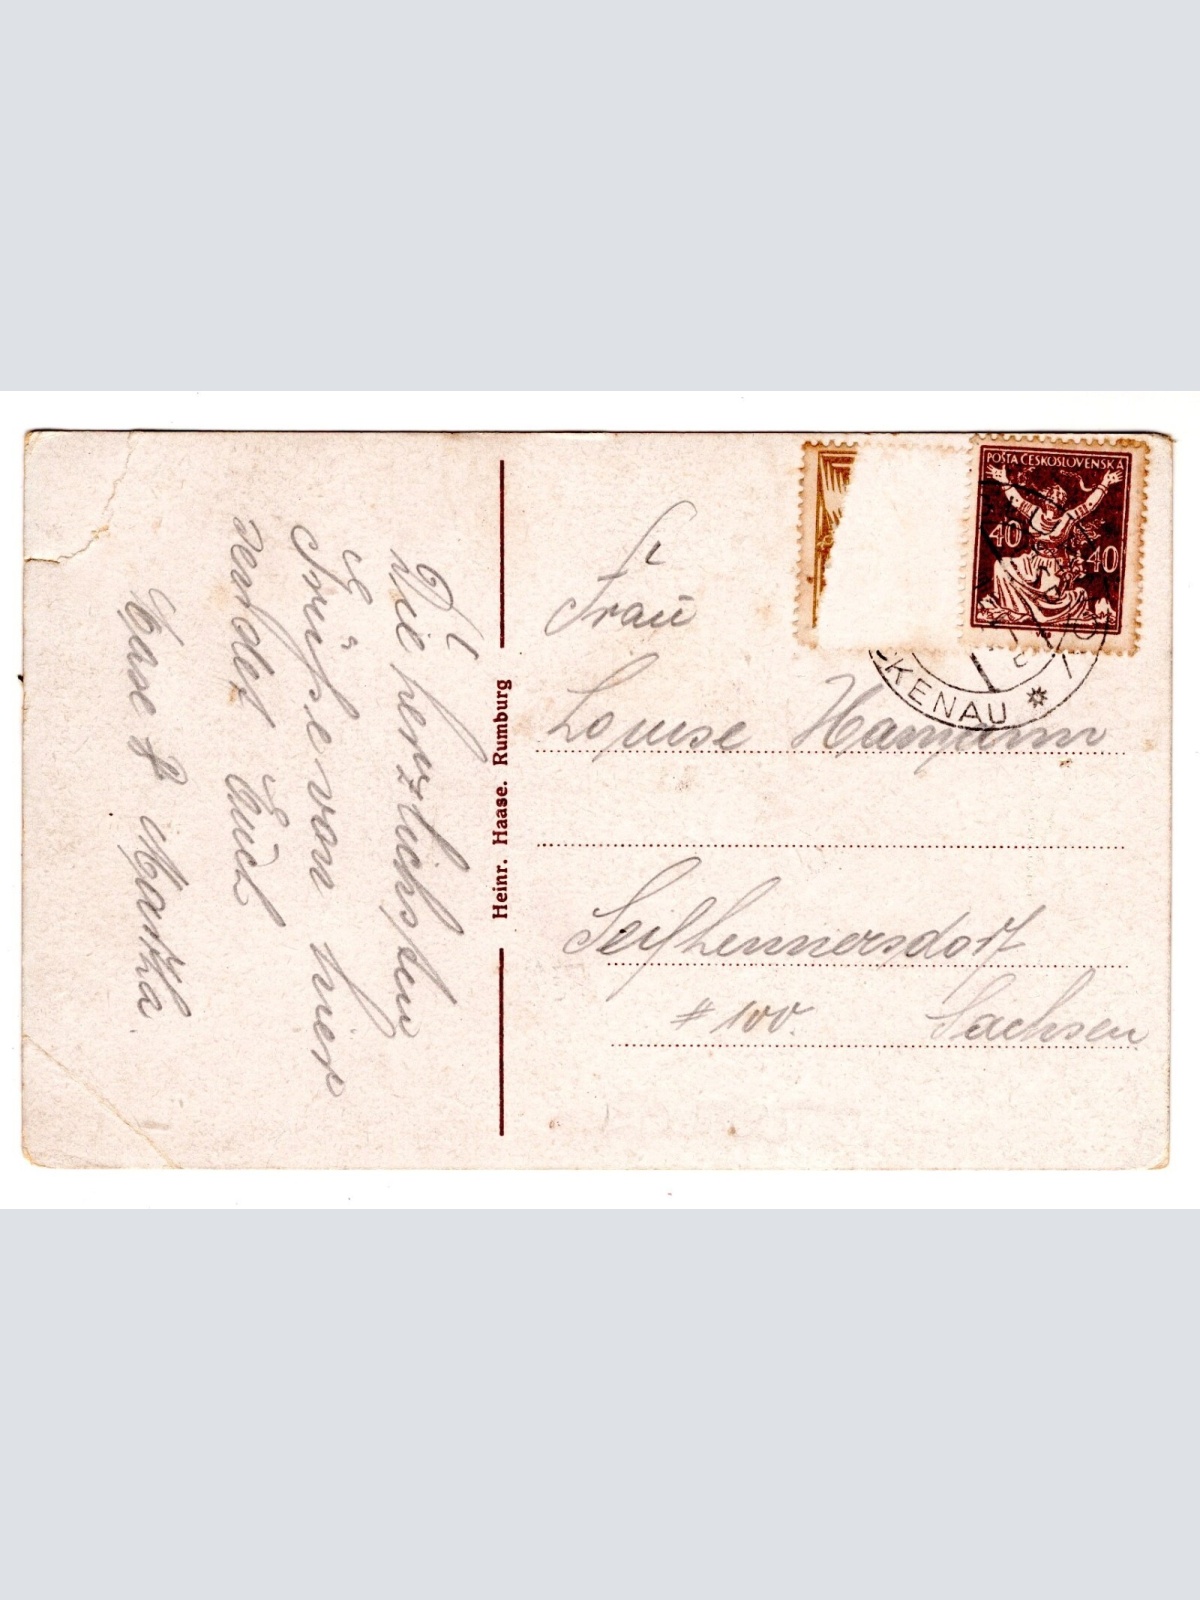 Die herzlichsten
Grüße von hier
sendet Euch
Martha
Heinr. Haase. Rumburg
POŠTA ČESKOSLOVENSKÁ
40 40
KENAU
Frau
Louise Hamann
Seifhennersdorf
# 100. Sachsen